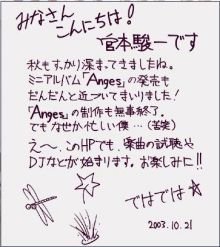 みなさん
こんにちは！
宮本駿一です
秋もすっかり深まってきましたね。
ミニアルバム「Anges」の発売も
だんだんと近づいてまいりました！
「Anges」の制作も無事終了。
でもなぜか忙しい僕…(苦笑)
え〜、このHPでも、楽曲の試聴や
DJなどが始まります。お楽しみに!!
ではでは☆
2003.10.21